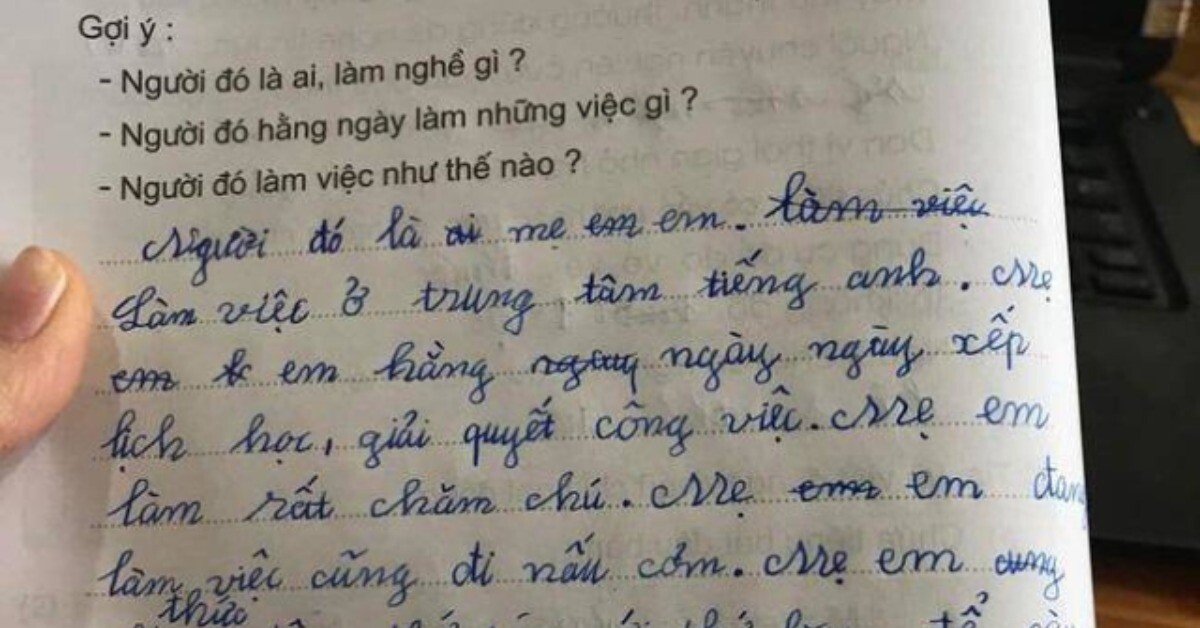 Gợi ý :
- Người đó là ai, làm nghề gì ?
- Người đó hằng ngày làm những việc gì ?
- Người đó làm việc như thế nào ?
Người đó là ai mẹ em em. làm việc
Làm việc ở trung tâm tiếng anh. Mẹ
em em hằng ngày ngày xếp
lịch học, giải quyết công việc. Mẹ em
làm rất chăm chú. Mẹ em em đang
làm việc cũng đi nấu cơm. Mẹ em
thức